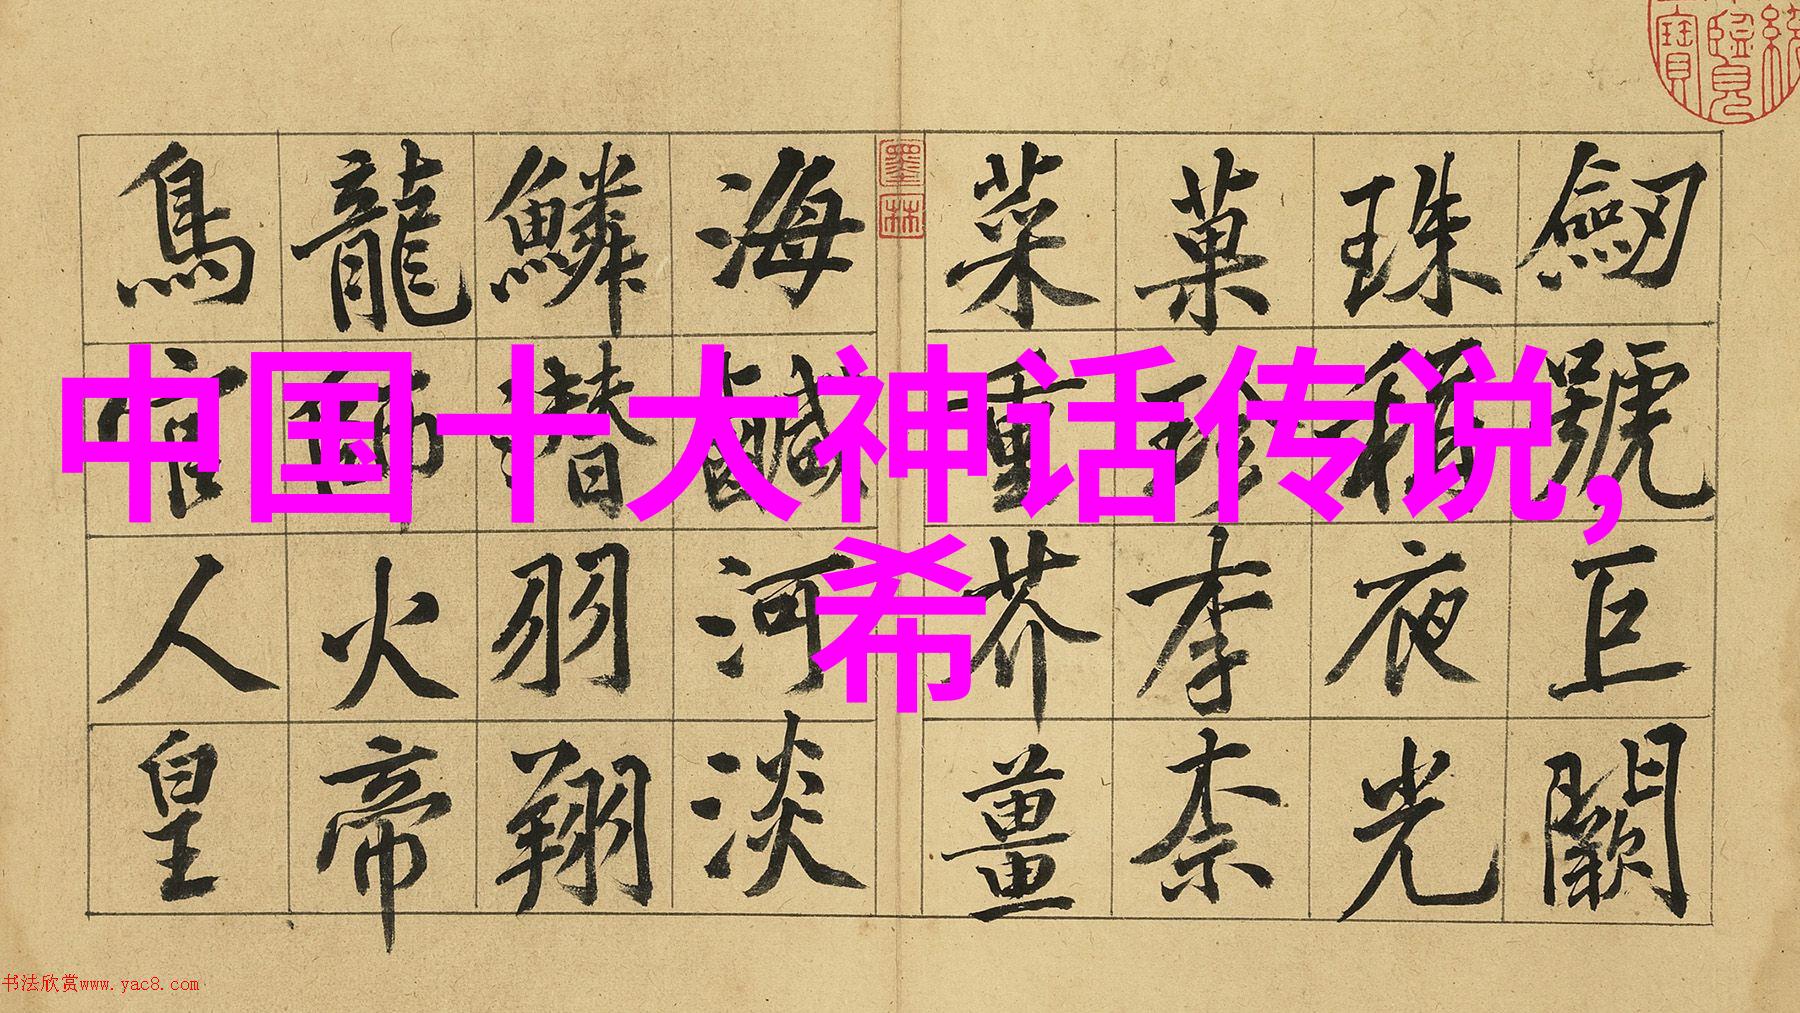 中国十大神话传说,
希
劒號巨闕
珠稱夜光
菓珍李柰
菜重芥薑
海鹹河淡
鱗潛羽翔
龍師火帝
鳥官人皇
墨林
书法欣赏www.yac8.com